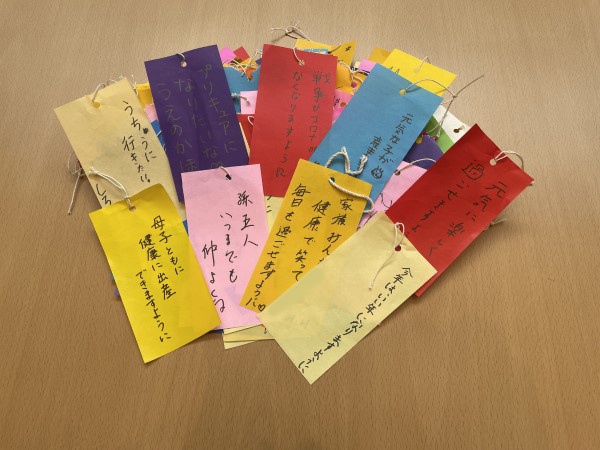 うちゅうに
行きたい。
プリキュアに
なりたいな
うえのかほ
戦争やコロナが
なくなりますように
元気な子が
元気に楽しく
過ごせますよ
母子ともに
健康に出産
できますように
孫五人
いつまでも
仲よくね
家族みん
健康で笑って
毎日を過ごせますように
今年はいい年になりますように